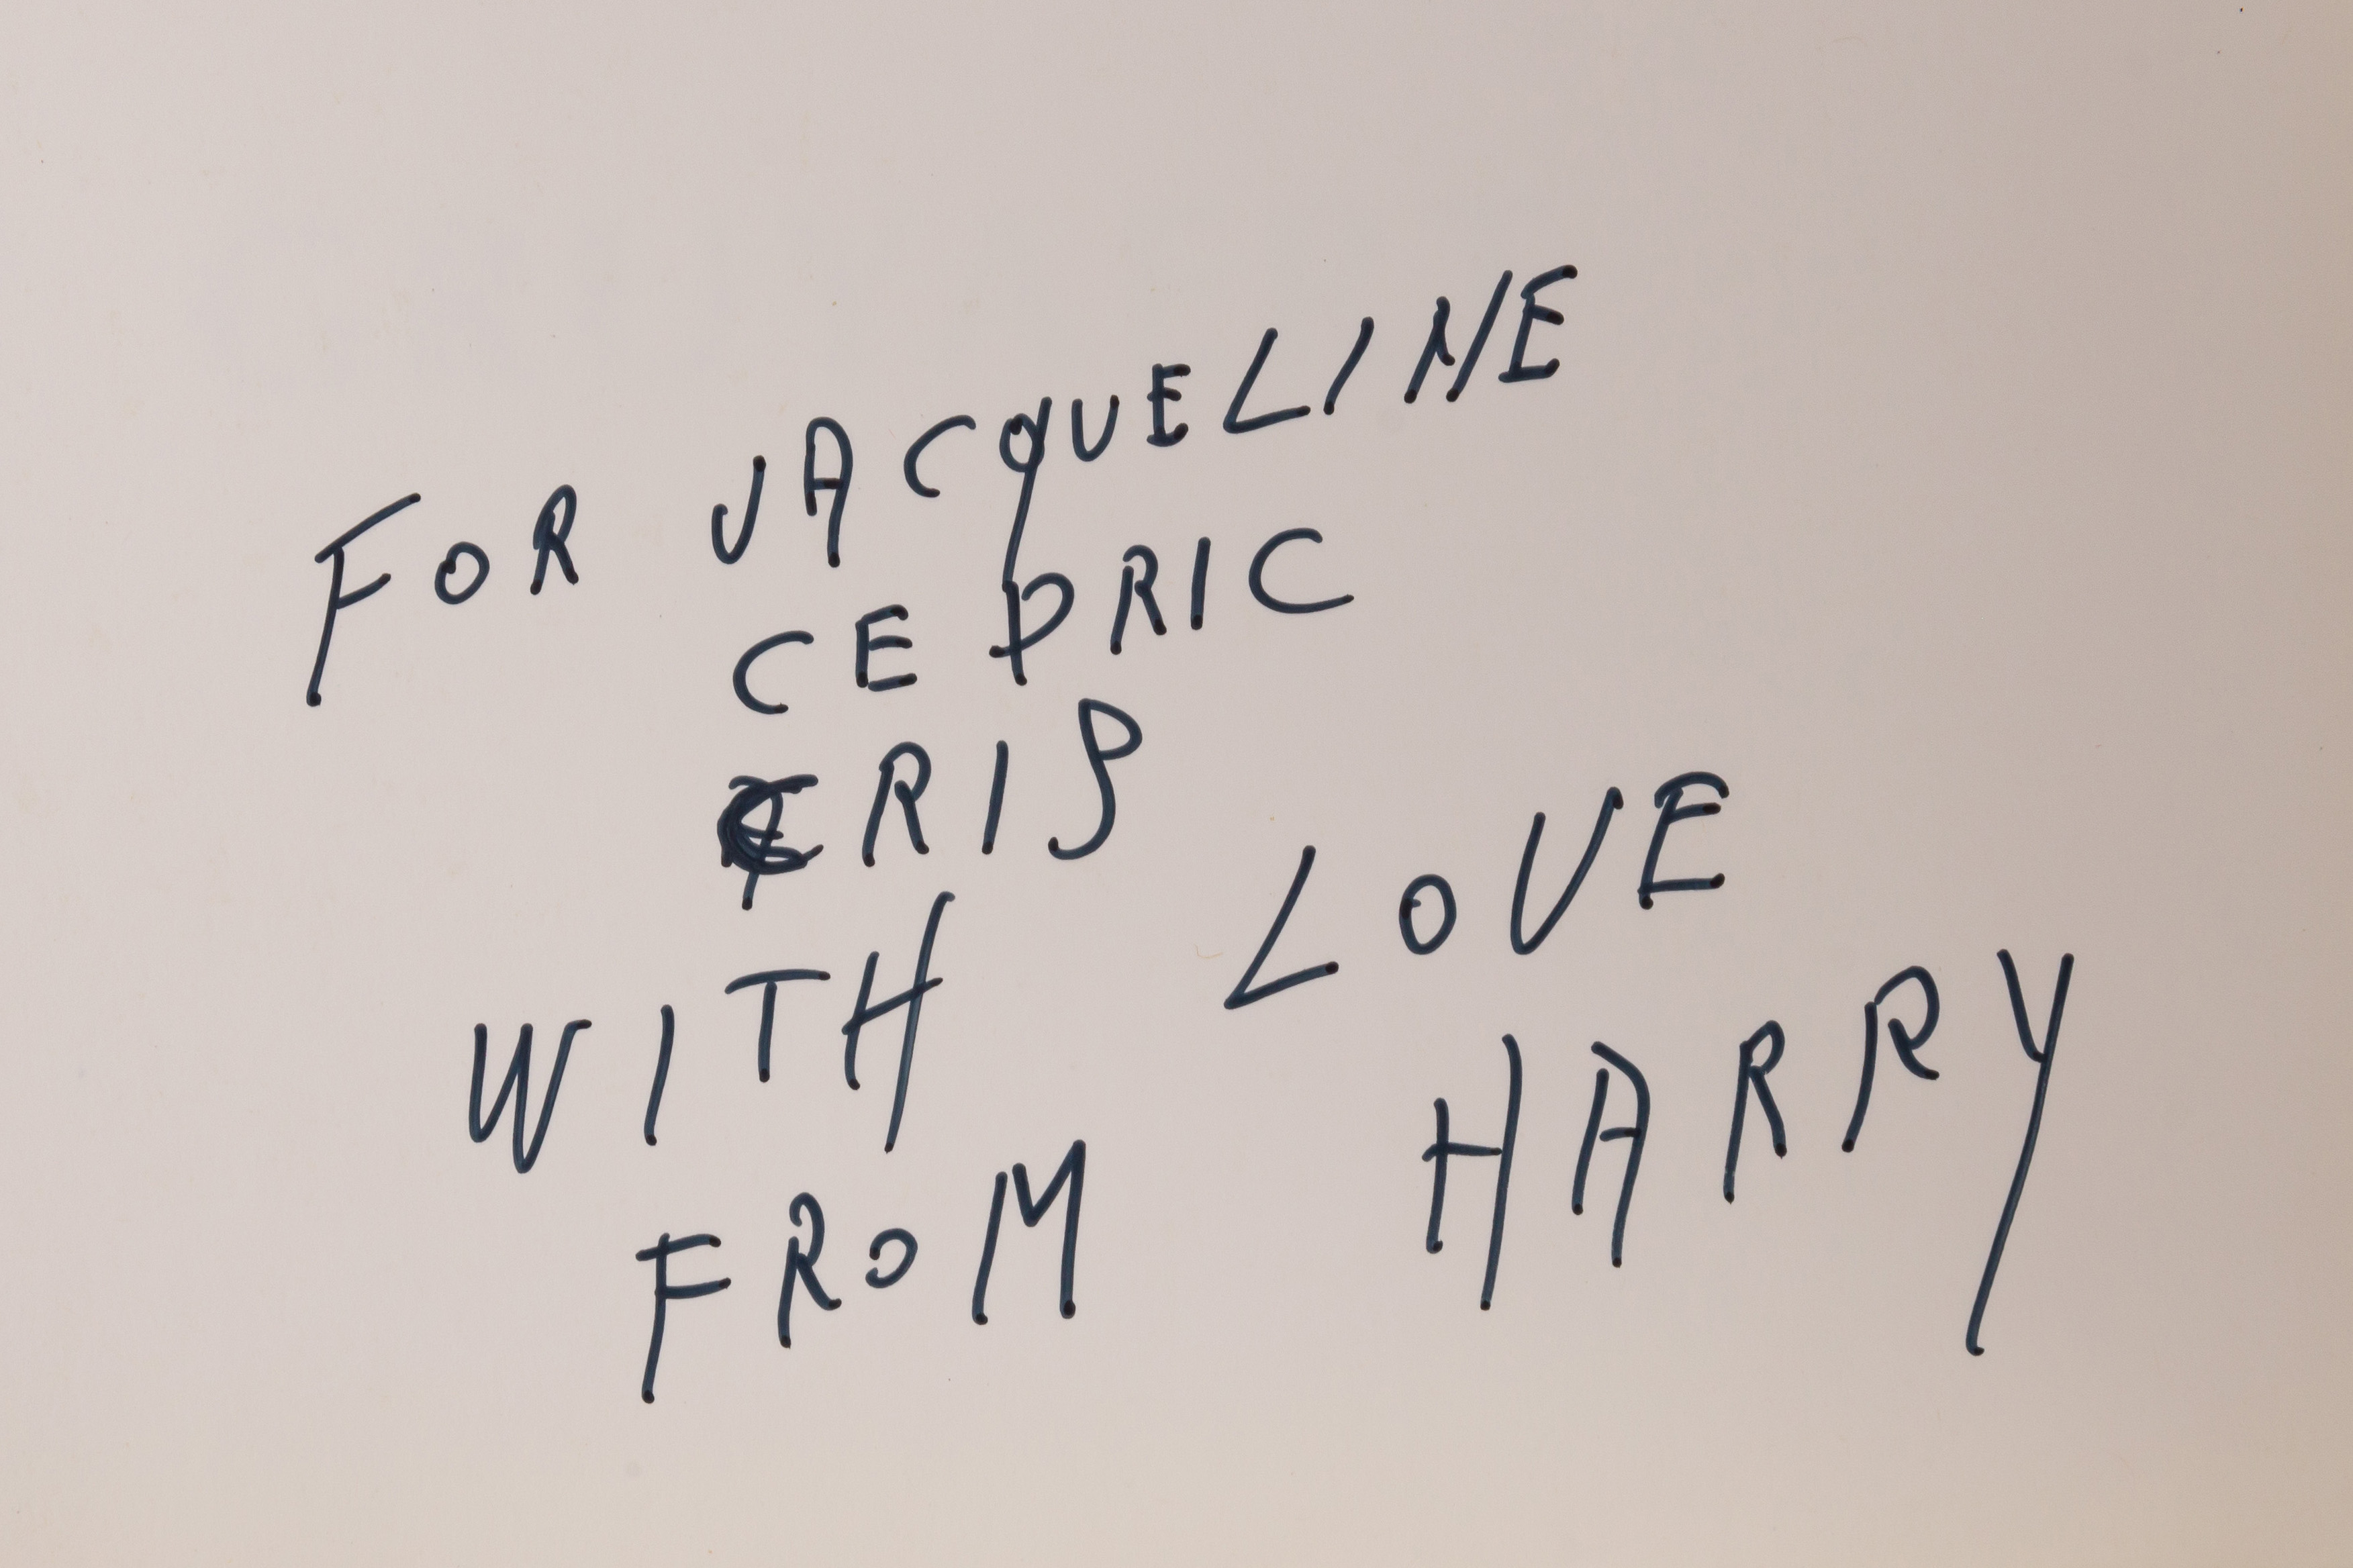 FOR JACQUELINE
CEDRIC
WITH LOVE
FROM HARRY